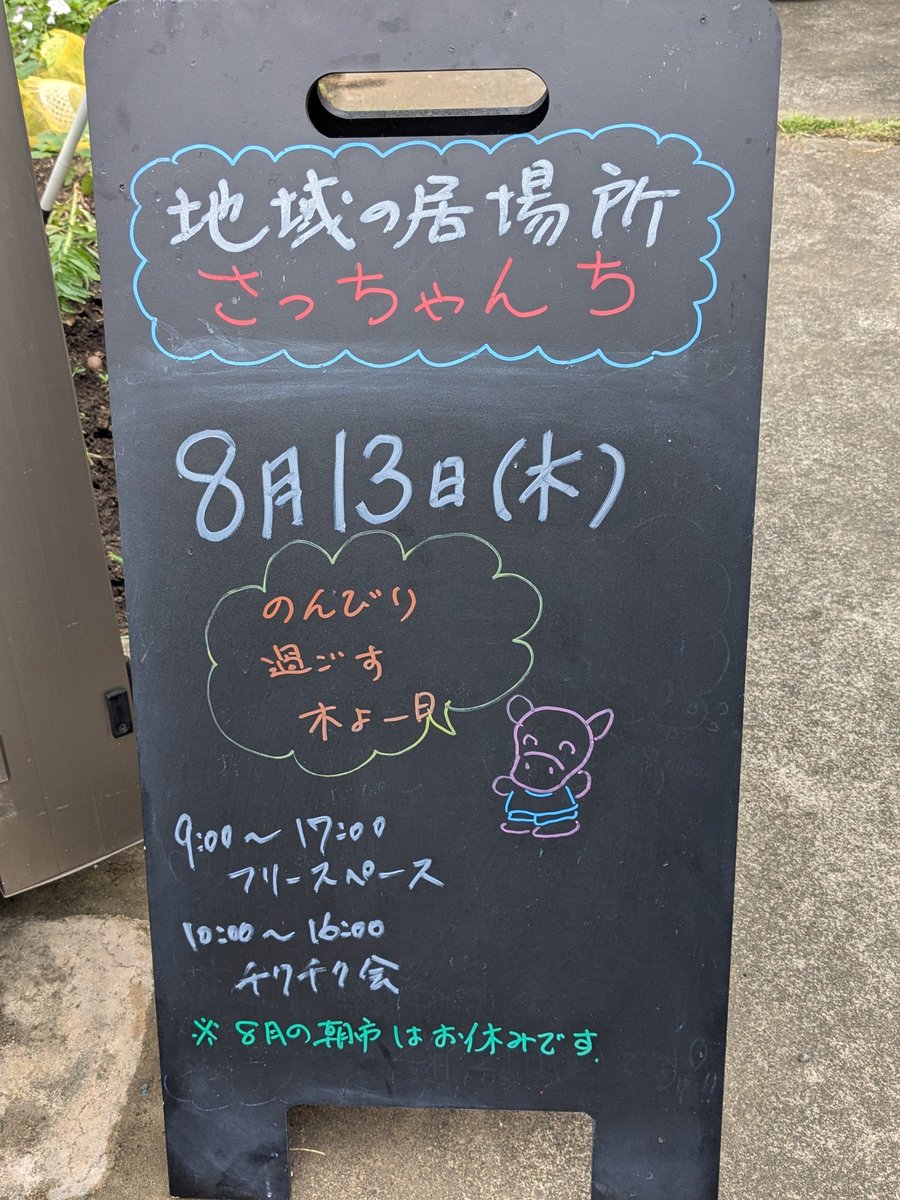 地域の居場所
さっちゃんち
8月13日(木)
のんびり
過ごす
木よー日
9:00～17:00
フリースペース
10:00～16:00
チクチク会
※ 8月の朝市はお休みです.